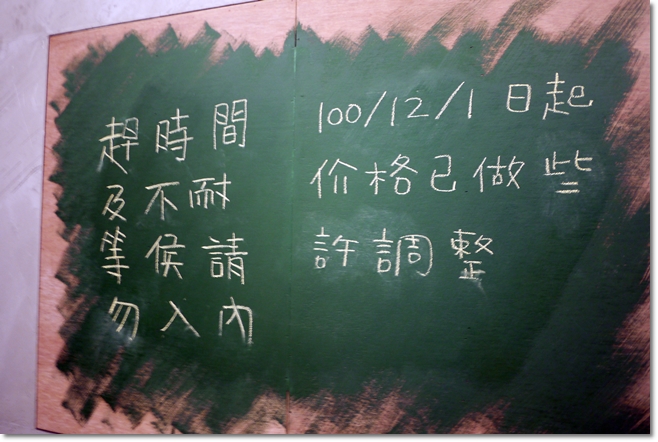 趕時間
及不耐
等侯請
勿入內
100/12/1 日起
价格已做些
許調整